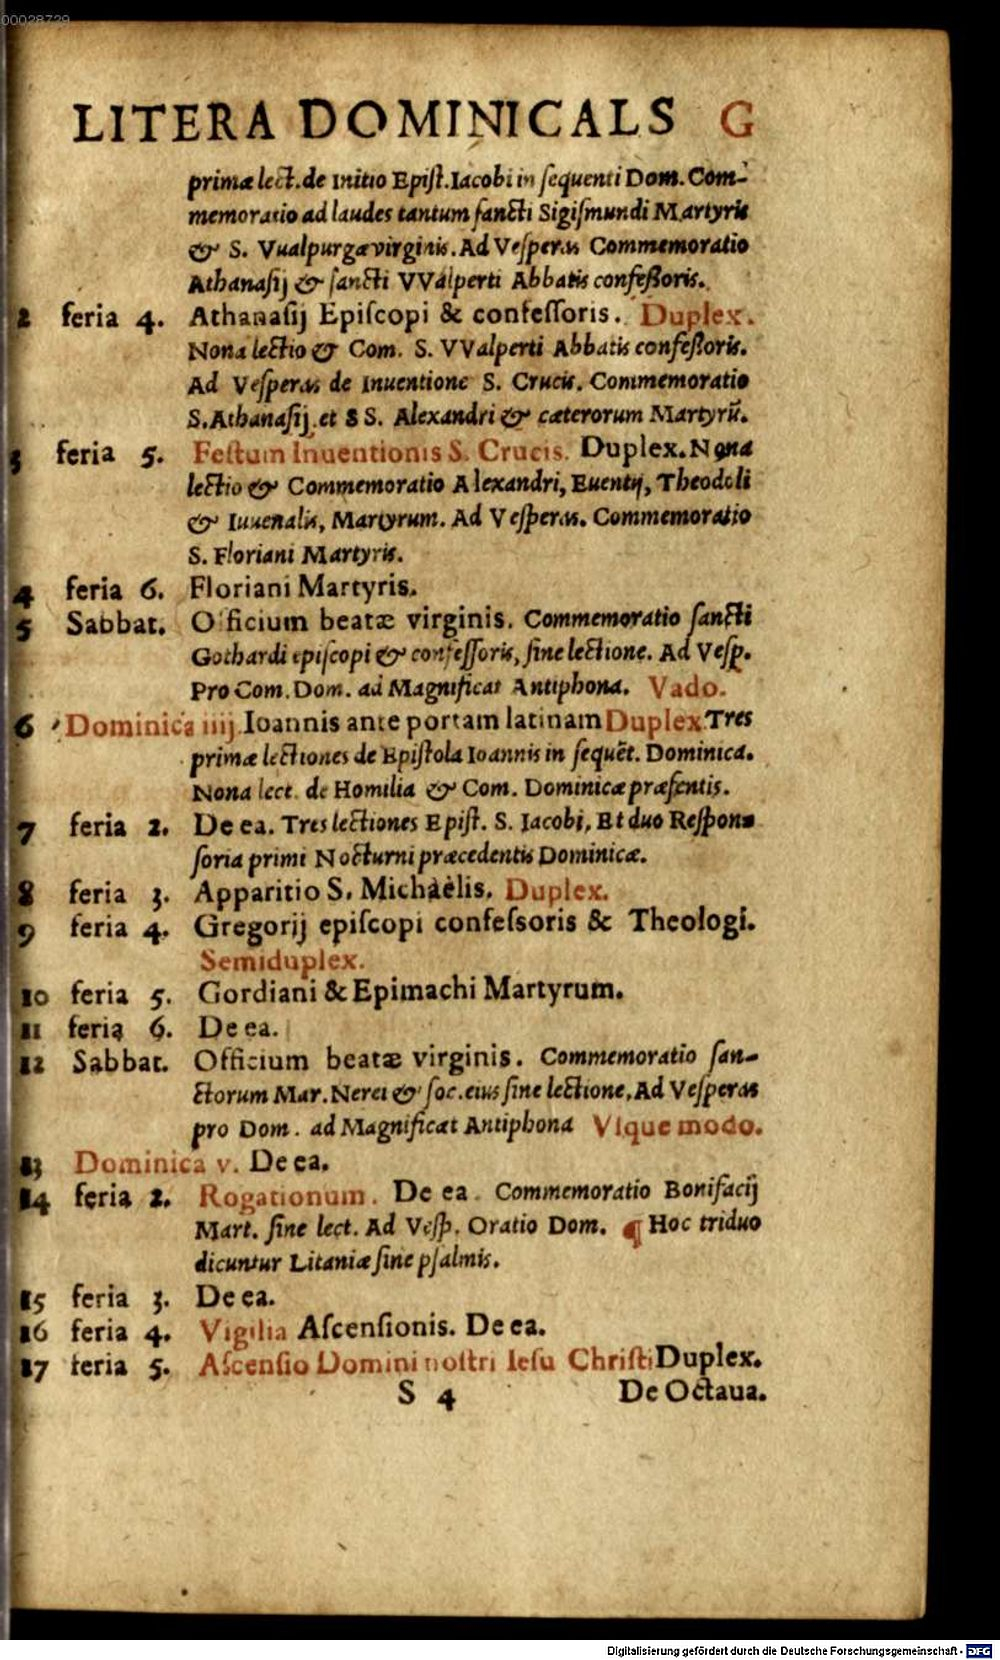 00028729
LITERA DOMINICALS G
primæ lect. de initio Epiſt. Iacobi in ſequenti Dom. Com-
memoratio ad laudes tantum ſancti Sigiſmundi Martyris
& S. Vualpurgæ virginis. Ad Veſperas Commemoratio
Athanaſij & ſancti VValperti Abbatis confeßoris.
2 feria 4. Athanaſij Epiſcopi & confeſſoris. Duplex.
Nona lectio & Com. S. VValperti Abbatis confeßoris.
Ad Veſperas de Inuentione S. Crucis. Commemoratio
S. Athanaſij et SS. Alexandri & cæterorum Martyrũ.
3 feria 5. Feſtum Inuentionis S. Crucis. Duplex. Nona
lectio & Commemoratio Alexandri, Euentij, Theodoli
& Iuuenalis, Martyrum. Ad Veſperas. Commemoratio
S. Floriani Martyris.
4 feria 6. Floriani Martyris.
5 Sabbat. Officium beatæ virginis. Commemoratio ſancti
Gothardi epiſcopi & confeſſoris, ſine lectione. Ad Veſp.
Pro Com. Dom. ad Magnificat Antiphona. Vado.
6 Dominica iiij. Ioannis ante portam latinam Duplex Tres
primæ lectiones de Epiſtola Ioannis in ſequẽt. Dominica.
Nona lect. de Homilia & Com. Dominicæ præſentis.
7 feria 2. De ea. Tres lectiones Epiſt. S. Iacobi, Et duo Reſpon-
ſoria primi Nocturni præcedentis Dominicæ.
8 feria 3. Apparitio S. Michaëlis. Duplex.
9 feria 4. Gregorij epiſcopi confeſsoris & Theologi.
Semiduplex.
10 feria 5. Gordiani & Epimachi Martyrum.
11 feria 6. De ea.
12 Sabbat. Officium beatæ virginis. Commemoratio ſan-
ctorum Mar. Nerei & ſoc. eius ſine lectione, Ad Veſperas
pro Dom. ad Magnificat Antiphona Vſque modo.
13 Dominica v. De ea.
14 feria 2. Rogationum. De ea. Commemoratio Bonifacij
Mart. ſine lect. Ad Veſp. Oratio Dom. ¶ Hoc triduo
dicuntur Litaniæ ſine pſalmis.
15 feria 3. De ea.
16 feria 4. Vigilia Aſcenſionis. De ea.
17 feria 5. Aſcenſio Domini noſtri Ieſu Chriſti Duplex.
S 4 De Octaua.
Digitalisierung gefördert durch die Deutsche Forschungsgemeinschaft - DFG